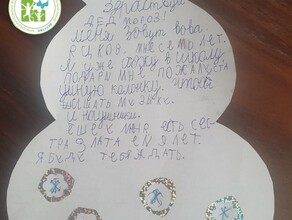 Здравствуй
ДЕД МОРОЗ!
МЕНЯ ЗОВУТ ВОВА.
МНЕ СЕМЬ ЛЕТ.
Я УЖЕ ХОЖУ В ШКОЛУ.
ПОДАРИ МНЕ ПОЖАЛУСТА
УМНУЮ КОЛОНКУ. ЧТОБЫ
СЛУШАТЬ МУЗЫКУ.
И НАУШНИКИ.
ЕЩЕ У МЕНЯ ЕСТЬ СЕС-
ТРА ЗЛАТА ЕЙ ЛЕТ.
Я БУДУ ТЕБЯ ЖДАТЬ.